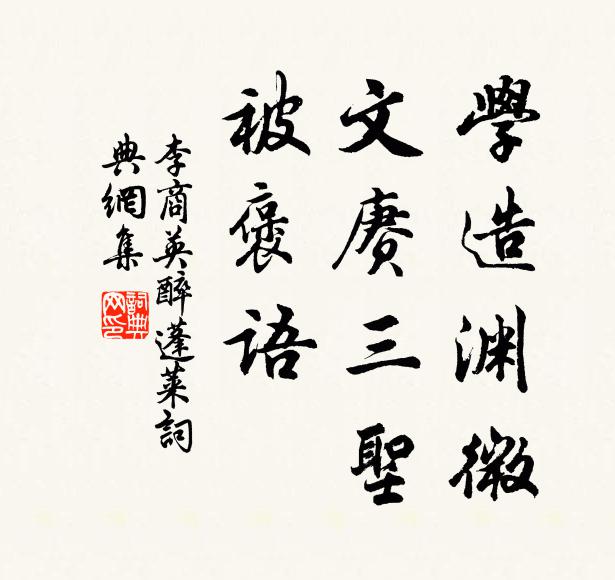 學造渊微
文赓三聖
被褒語
李商英醉蓬莱詞
典網集
詞典
网印